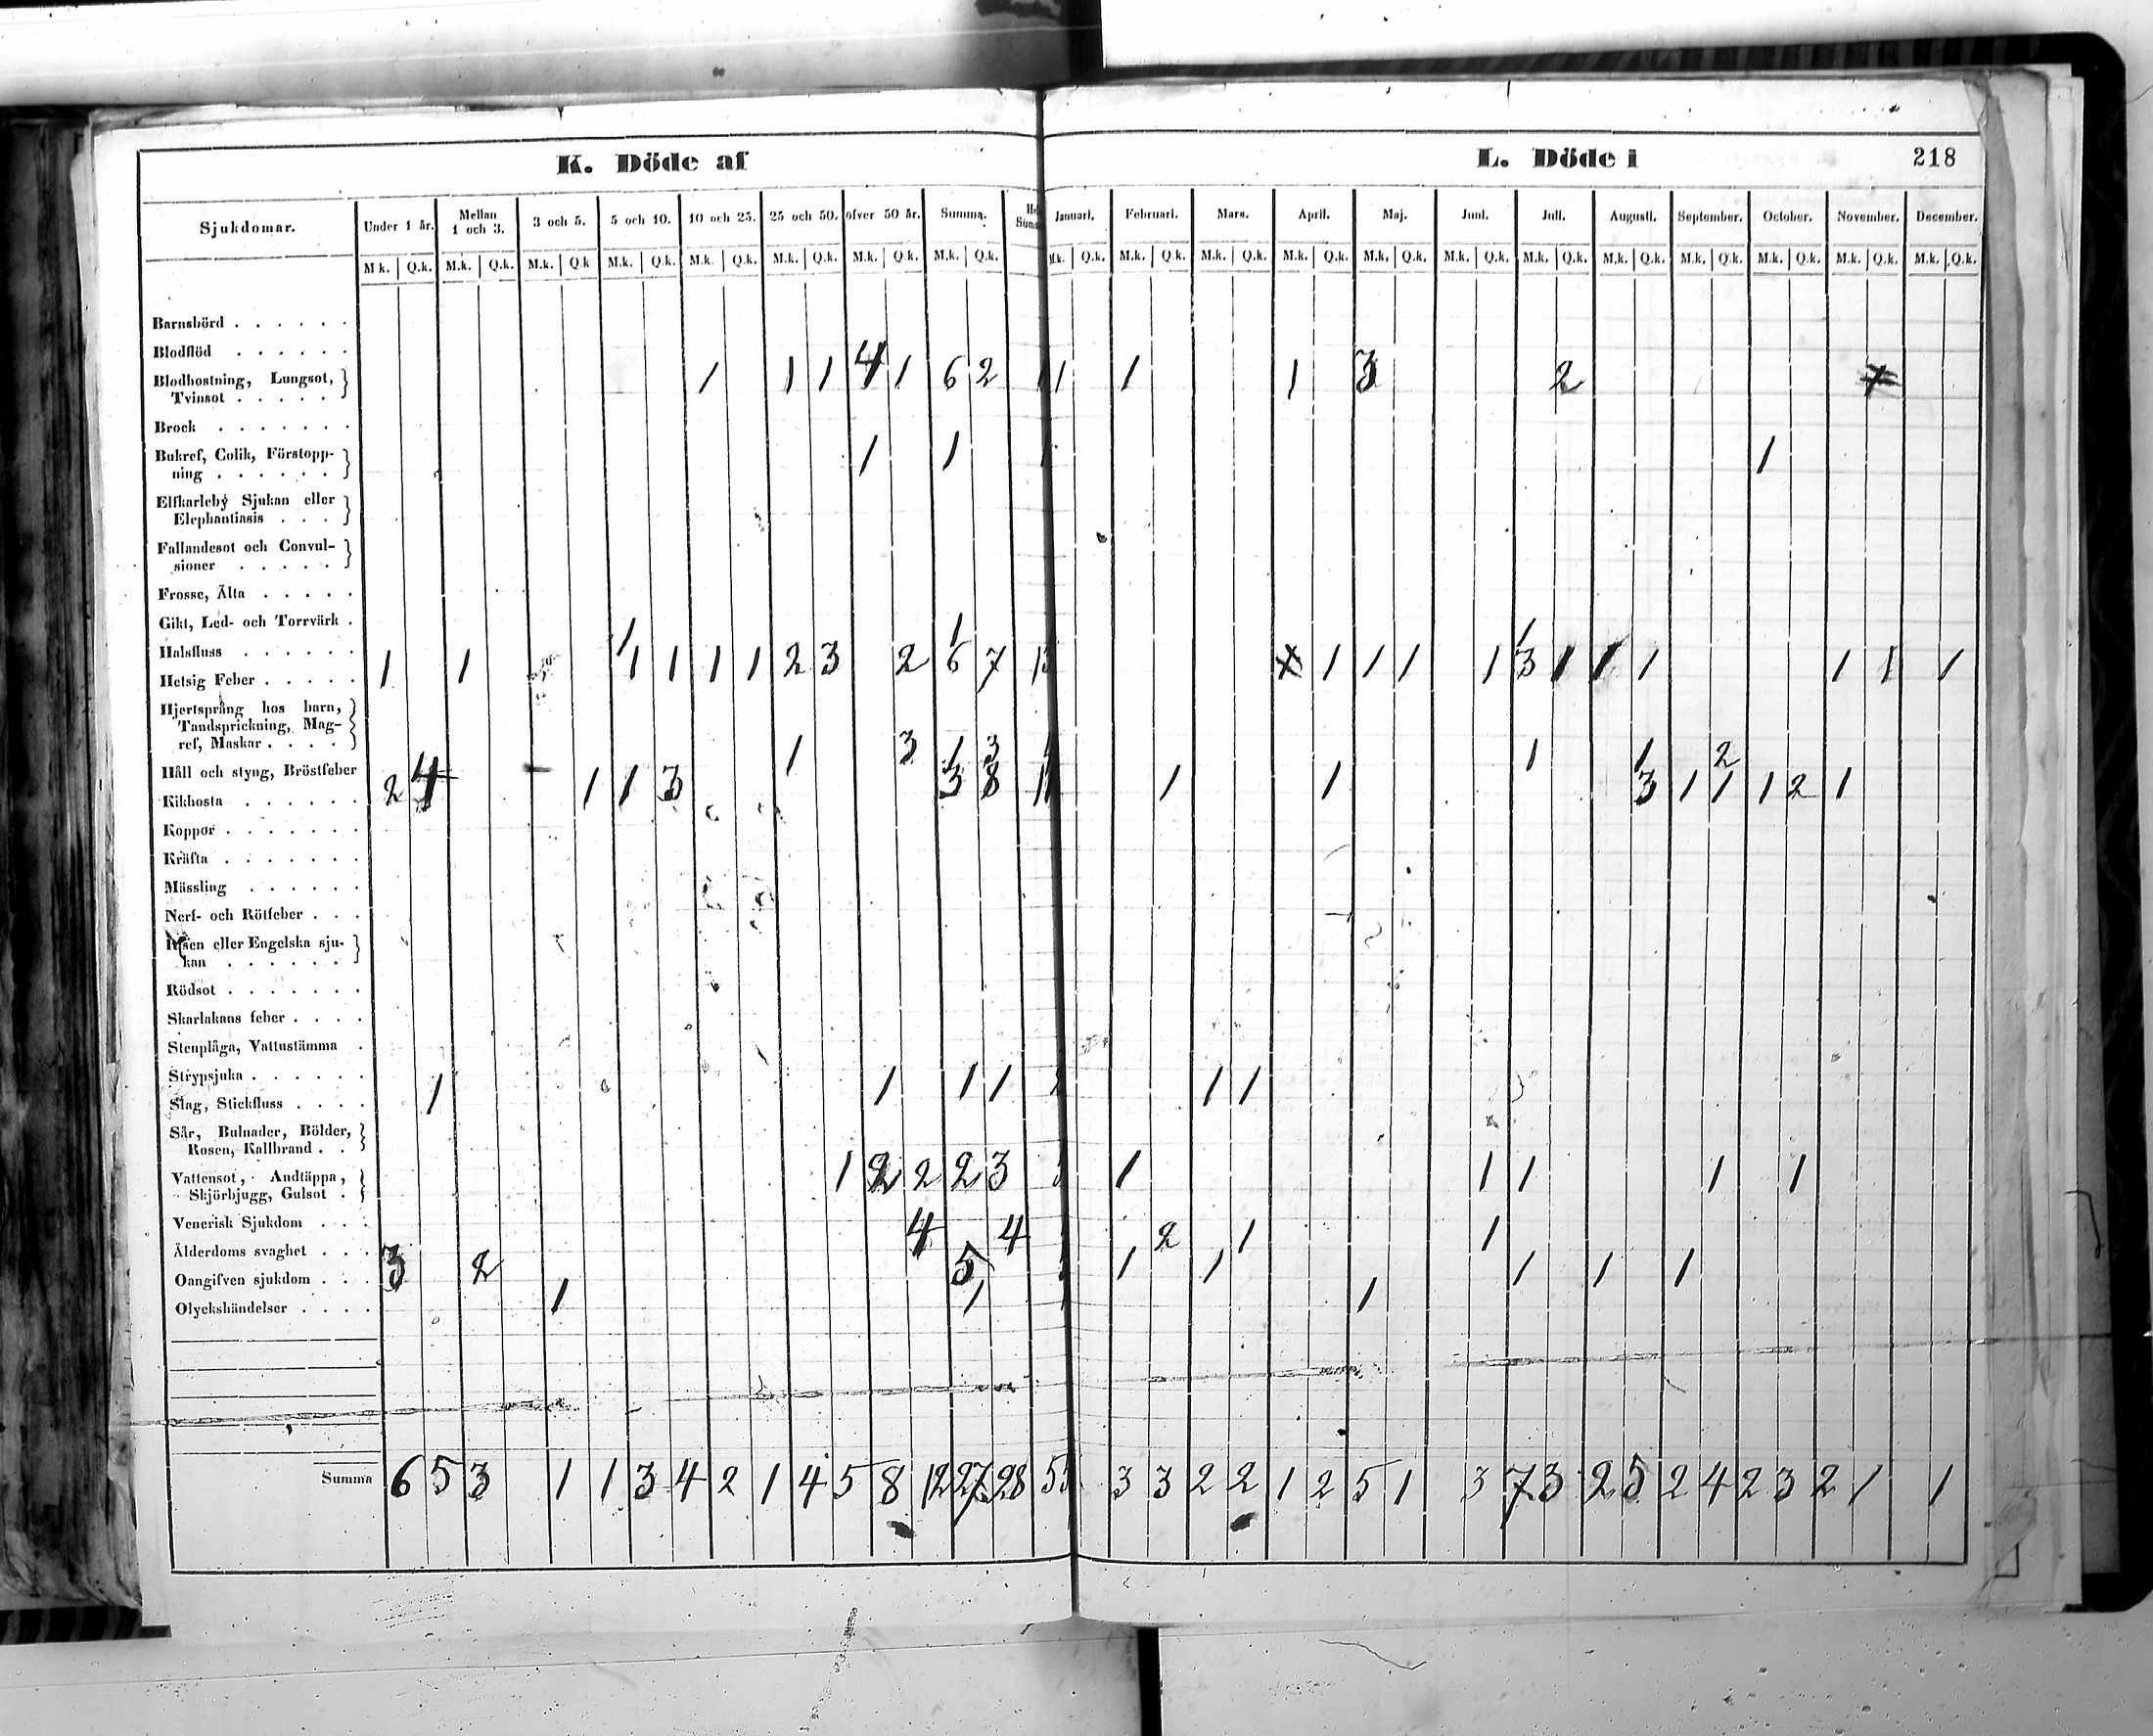 K. Döde af
L. Döde i
218
Sjukdomar. Under 1 år. Mellan 1 och 3. 3 och 5. 5 och 10. 10 och 25. 25 och 50. öfver 50 år. Summa. Januari. Februari. Mars. April. Maj. Juni. Juli. Augusti. September. October. November. December.
M.k. Q.k. M.k. Q.k. M.k. Q.k M.k. Q.k. M.k. Q.k. M.k. Q.k. M.k. Q.k. M.k. Q.k. M.k. Q.k. M.k. Q.k. M.k. Q.k. M.k. Q.k. M.k. Q.k. M.k. Q.k. M.k. Q.k. M.k. Q.k. M.k. Q.k. M.k. Q.k. M.k. Q.k. M.k. Q.k.
Barnsbörd
Blodflöd
Blodhostning, Lungsot, 1 1 1 4 1 6 2 1 1 1 3 2
Tvinsot
Brock
Bukref, Colik, Förstopp- 1 1 1
ning
Elfkarleby Sjukan eller
Elephantiasis
Fallandesot och Convul-
sioner
Frosse, Älta
Gikt, Led- och Torrvärk 1 1 1
Halsfluss
Hetsig Feber 1 1 1 1 1 1 2 3 2 6 7 1 1 1 1 3 1 1 1 1 1 1
Hjertsprång hos barn,
Tandsprickning, Mag-
ref, Maskar
Håll och styng, Bröstfeber 1 3 1 3 1 1 2
Kikhosta 2 4 1 1 3 3 8 1 1 3 1 1 1 2 1
Koppor
Kräfta
Mässling
Nerf- och Rötfeber
Risen eller Engelska sju-
kan
Rödsot
Skarlakans feber
Stenplåga, Vattustämma
Strypsjuka
Slag, Stickfluss 1 1 1 1 1 1
Sår, Bulnader, Bölder,
Rosen, Kallbrand
Vattensot, Andtäppa, 1 2 2 2 3 1 1 1 1 1
Skjörbjugg, Gulsot
Venerisk Sjukdom
Ålderdoms svaghet 4 4 2 1 1
Oangifven sjukdom 3 2 5 1 1 1 1 1
Olyckshändelser 1 1 1
Summa 6 5 3 1 1 3 4 2 1 4 5 8 12 27 28 55 3 3 2 2 1 2 5 1 3 7 3 2 5 2 4 2 3 2 1 1